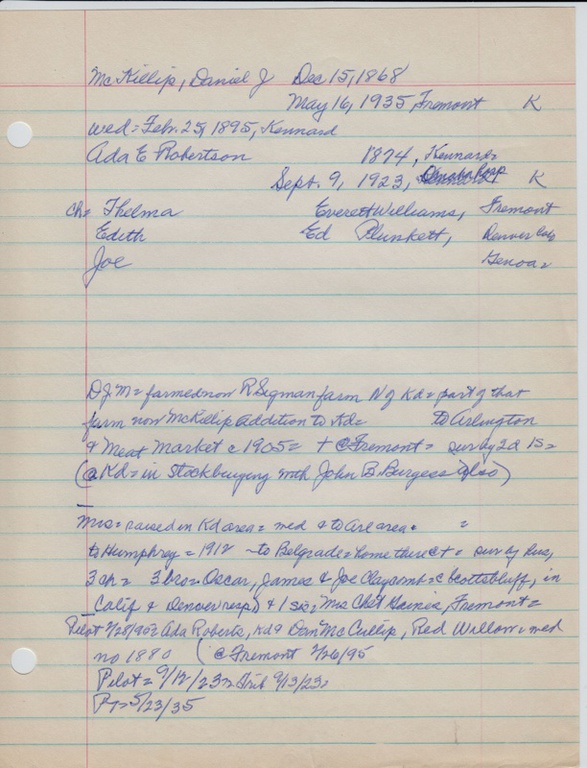 McKillip, Daniel J Dec 15, 1868
May 16, 1935, Fremont K
wed= Feb. 25, 1895, Kennard
Ada E Robertson 1874, Kennard=
Sept. 9, 1923, K
ch= Thelma Everett Williams, Fremont
Edith Ed Plunkett, Denver Colo
Joe Genoa=
DJM= farmed now R Segman farm N of Kd= part of that
farm now McKillip addition to Kd= to Arlington
& Meat Market c 1905= + @ Fremont= surv by 2d 1s=
(@ Kd= in Stock buying with John B. Burgess also)
Mrs= raised in Kd area= wed & to Arl area=
to Humphrey= 1912 - to Belgrade= home there at = surv by hus,
3 ch= 3 bros= Oscar, James & Joe Claycomb= @ Scottsbluff, in
Calif & Denver resp) & 1 sis, Mrs Chet Gaines, Fremont=
Pilot 2/28/95= Ada Roberts, Kd & Dan McCullip, Red Willow= wed
no 1880 (@ Fremont 2/26/95
Pilot= 9/12/23= Trib 9/13/23=
PT= 5/23/35